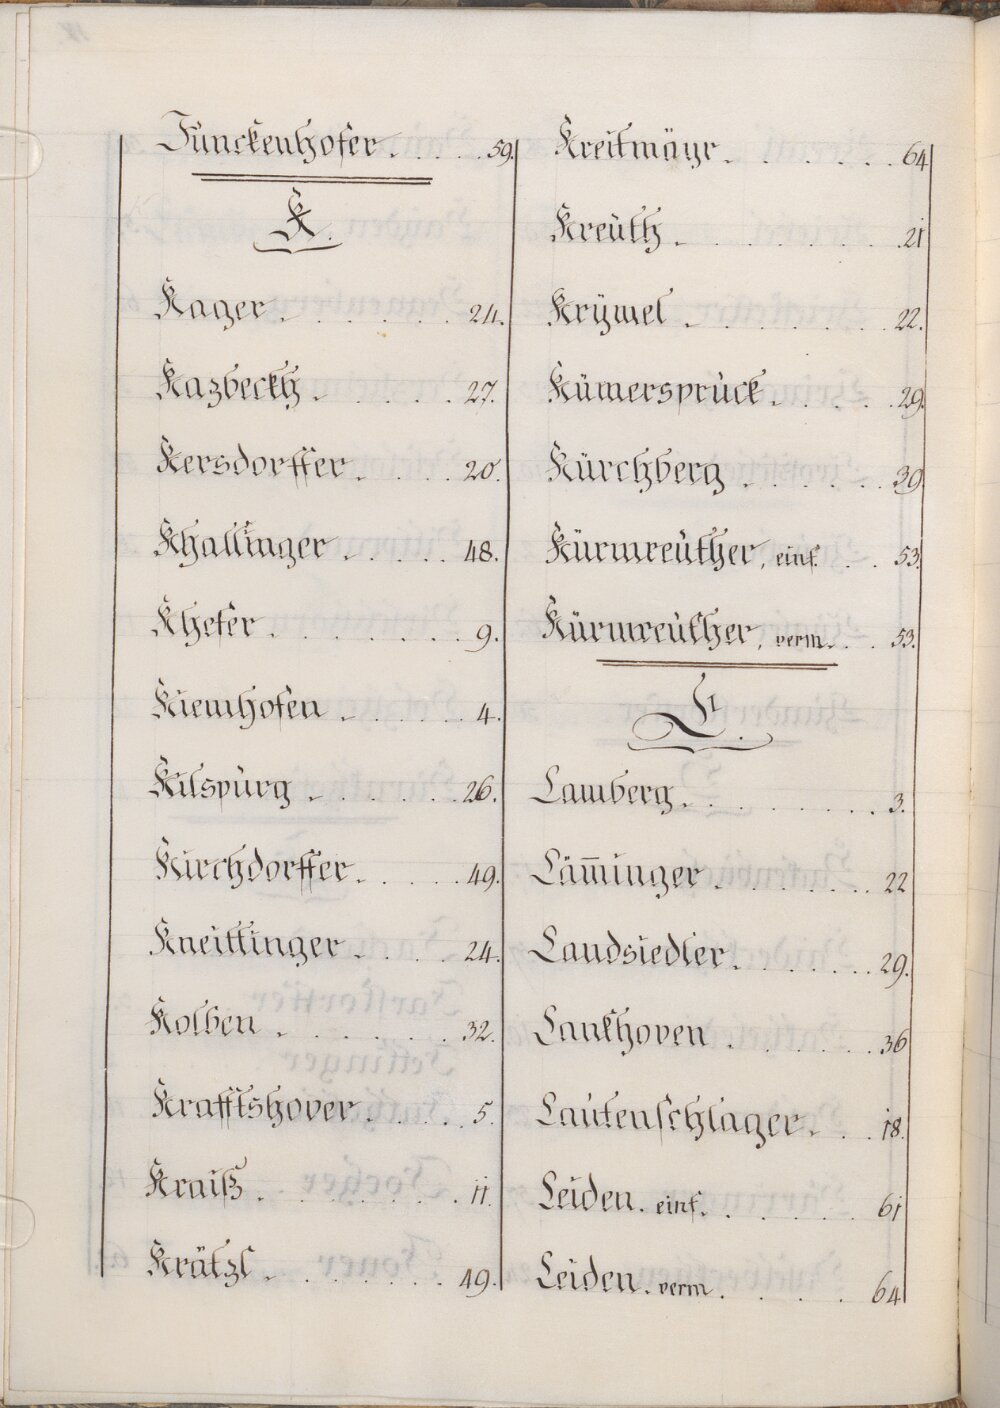 Jünckenhofer. . . . . 59.
K.
Kager. . . . . . . 24.
Kazbeckh. . . . . . 27.
Kersdorffer. . . . . 20.
Khallinger. . . . . 48.
Khefer. . . . . . . 9.
Kiemhofen. . . . . 4.
Kilspùrg. . . . . . 26.
Kirchdorffer. . . . . 49.
Kneittinger. . . . . 24.
Kolben. . . . . . . 32.
Krafftshover. . . . . 5.
Kraiß. . . . . . . . 11.
Krätzl. . . . . . . . 49.
Kreitmäyr. . . . . . . 64
Kreùth. . . . . . . . 21
Krÿmel. . . . . . . 22.
Kümersprùck. . . . . 29.
Kürchberg. . . . . . 39
Kürmreùther, einf. . . 53.
Kürmreùther, verm. . . 53.
L.
Lamberg. . . . . . . . 3.
Läm̄inger. . . . . . . 22
Landsiedler. . . . . . 29.
Lankhoven. . . . . . 36
Laùtenschlager. . . 18.
Leiden. einf. . . . . . 61
Leiden. verm. . . . . 64